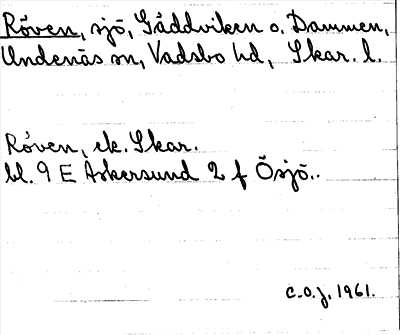 Röven, sjö, Gäddviken o. Dammen,
Undenäs sn, Vadsbo hd, Skar. l.
Röven, ek. Skar.
bl. 9 E Askersund 2 f Ösjö.
C.O.J. 1961.